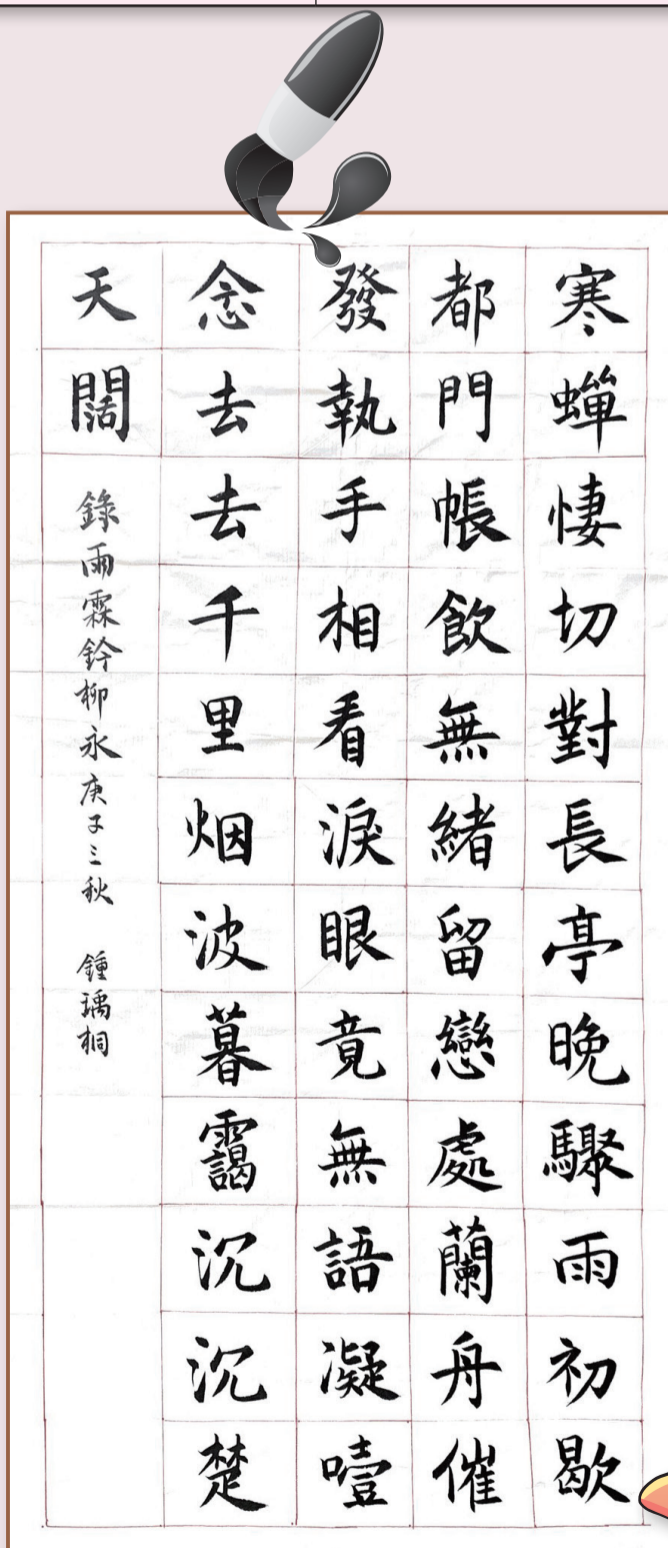 寒蟬悽切對長亭晚驟雨初歇
都門帳飲無緒留戀處蘭舟催
發執手相看淚眼竟無語凝噎
念去去千里烟波暮靄沉沉楚
天闊
錄雨霖鈴柳永庚子三秋 鍾瑀桐